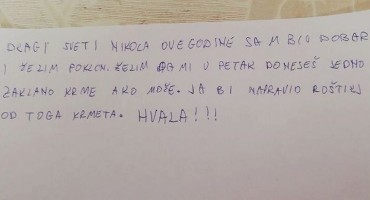 DRAGI SVETI NIKOLA OVE GODINE SAM BIO DOBAR
I ŽELIM POKLON. ŽELIM DA MI U PETAK DONESEŠ JEDNO
ZAKLANO KRME AKO MOŽE. JA BI NAPRAVIO ROŠTILJ
OD TOGA KRMETA. HVALA!!!